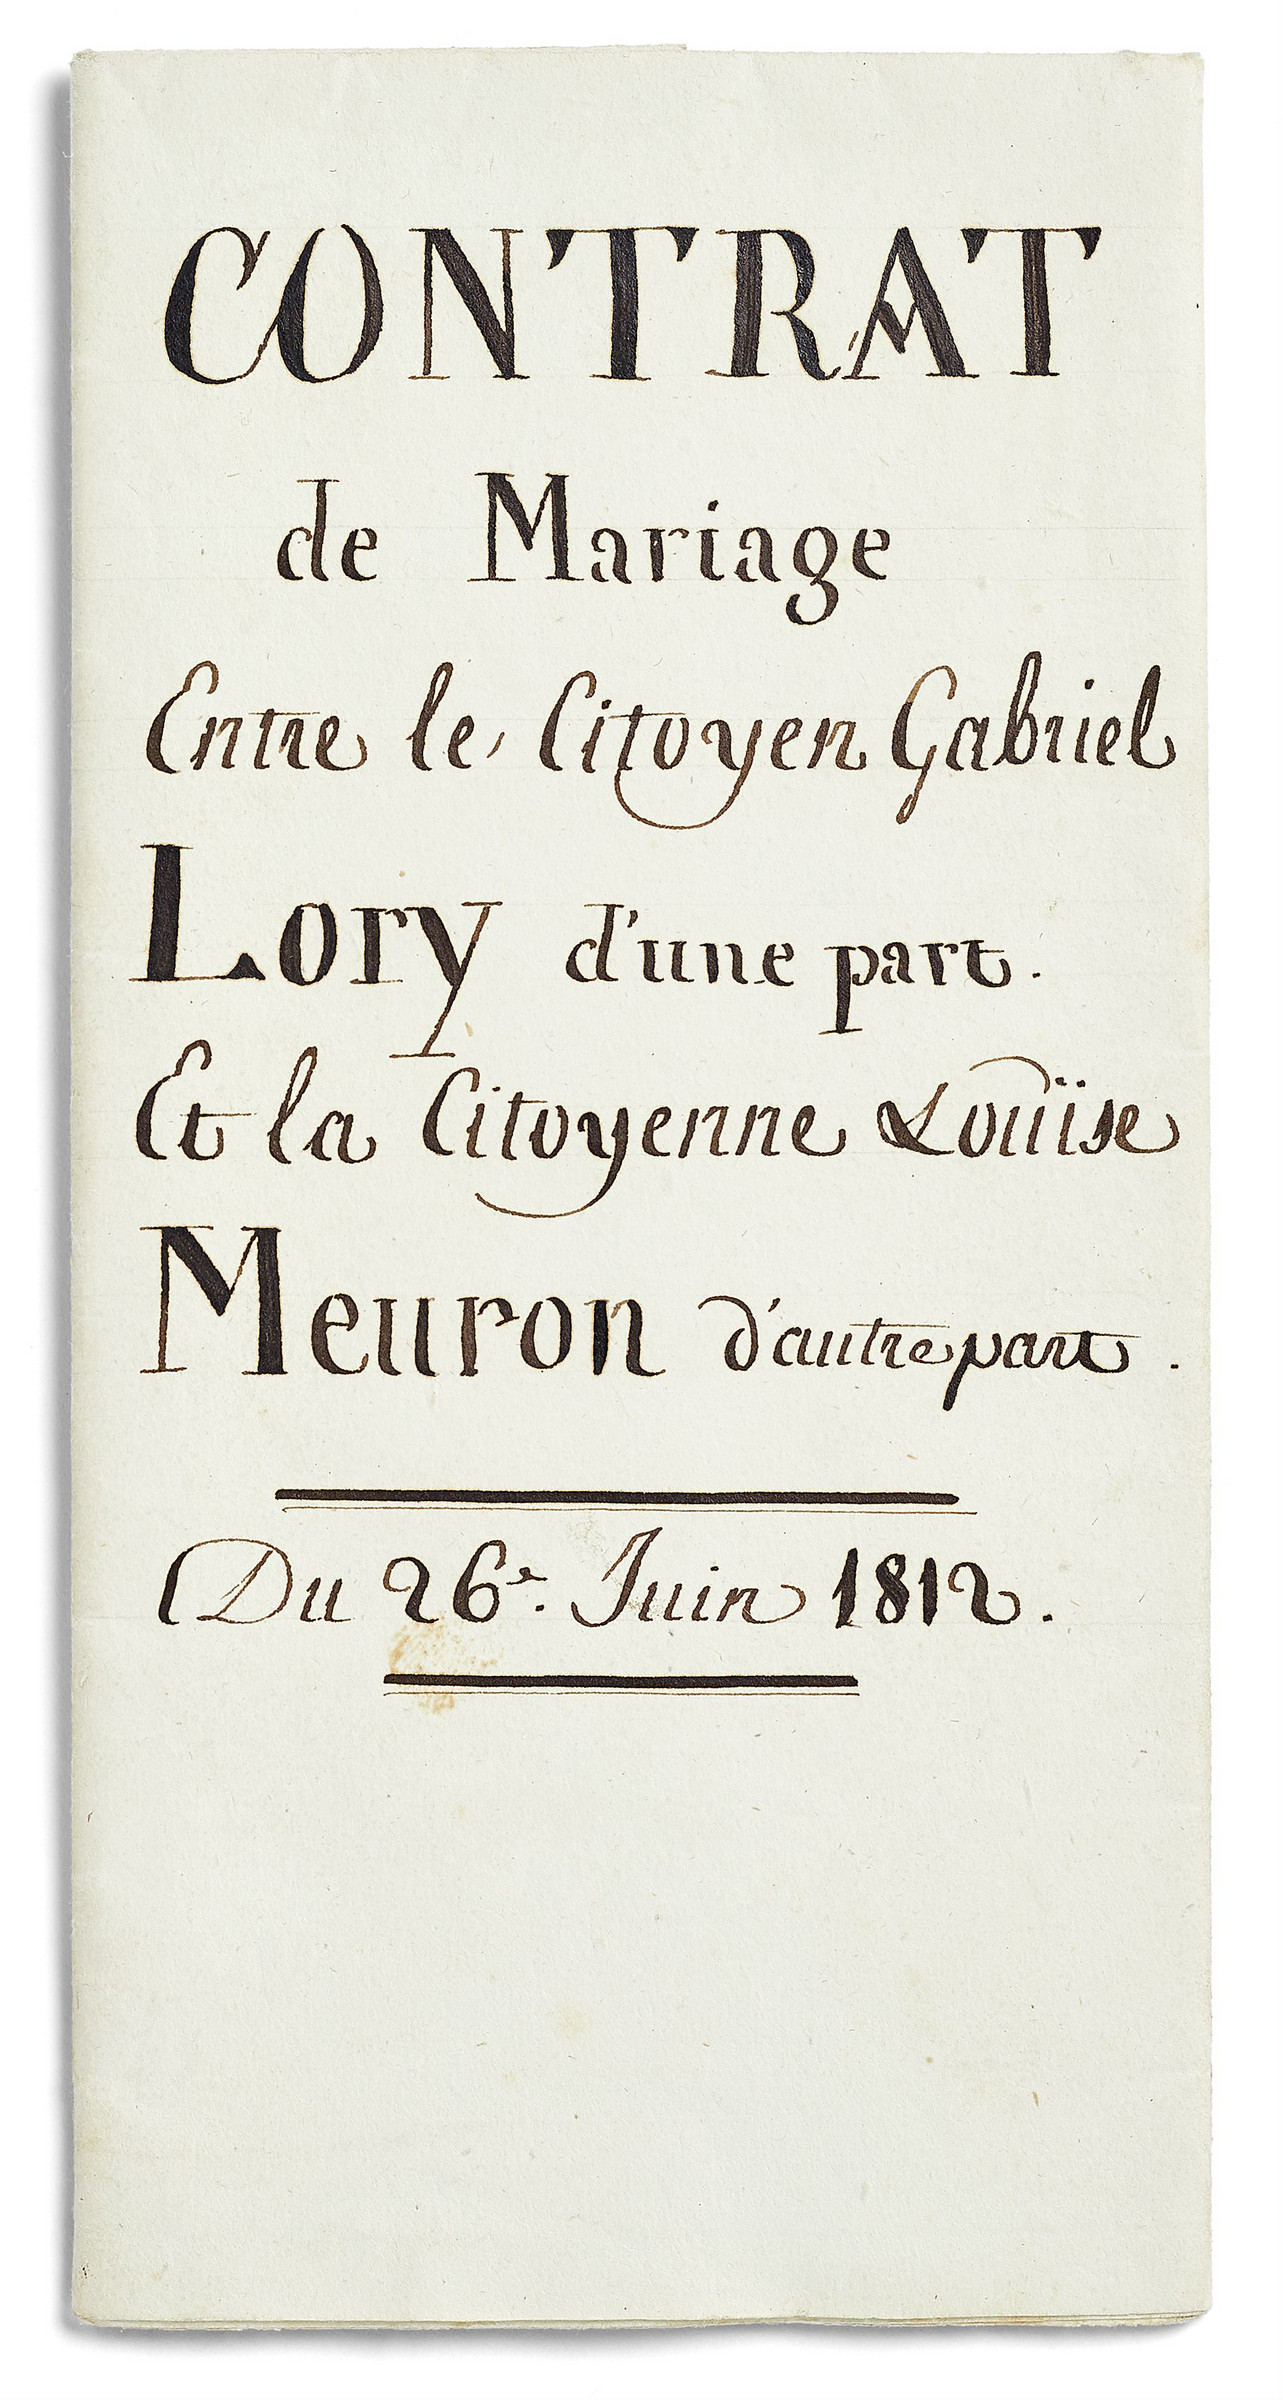 CONTRAT
de Mariage
Entre le Citoyen Gabriel
Lory d'une part.
Et la Citoyenne Louïse
Meuron d'autre part.
Du 26e. Juin 1812.